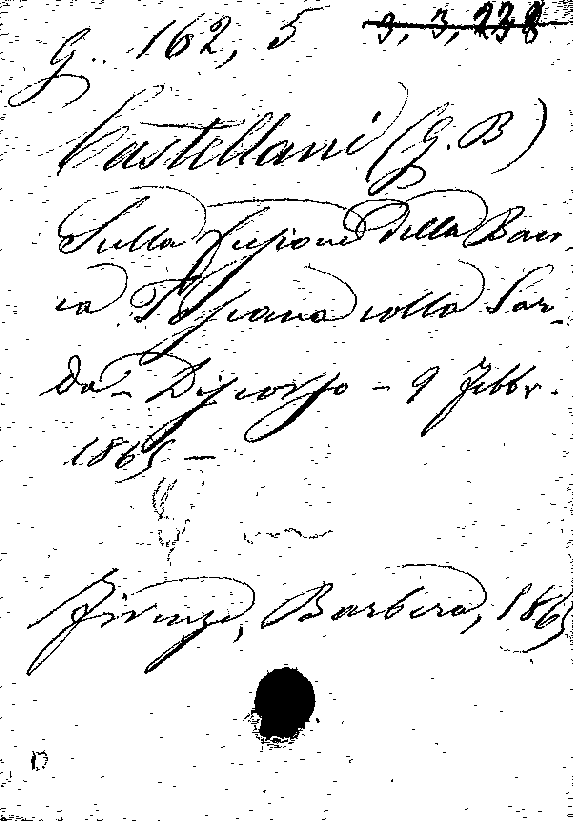 G.. 162, 5 3, 3, 238
Castellani (G. B)
Sulla Fusione della Ban-
ca Toscana colla Sar-
da - Discorso - 9 Febbr.
1865 -
Firenze, Barbera, 1865